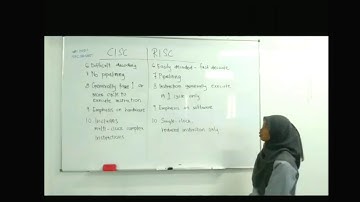 CISC
RISC
6. Difficult decoding
7 No pipelining
8 Generally take 1 or
more cycle to
execute instruction
9 Emphasis on hardware
10. Includes
multi-clock complex
instructions
6 Easily decoded - fast decoder
7 Pipelining
8 Instruction generally execute
in 1 cycle only
9 Emphasis on software
10 Single-clock,
reduced instruction only